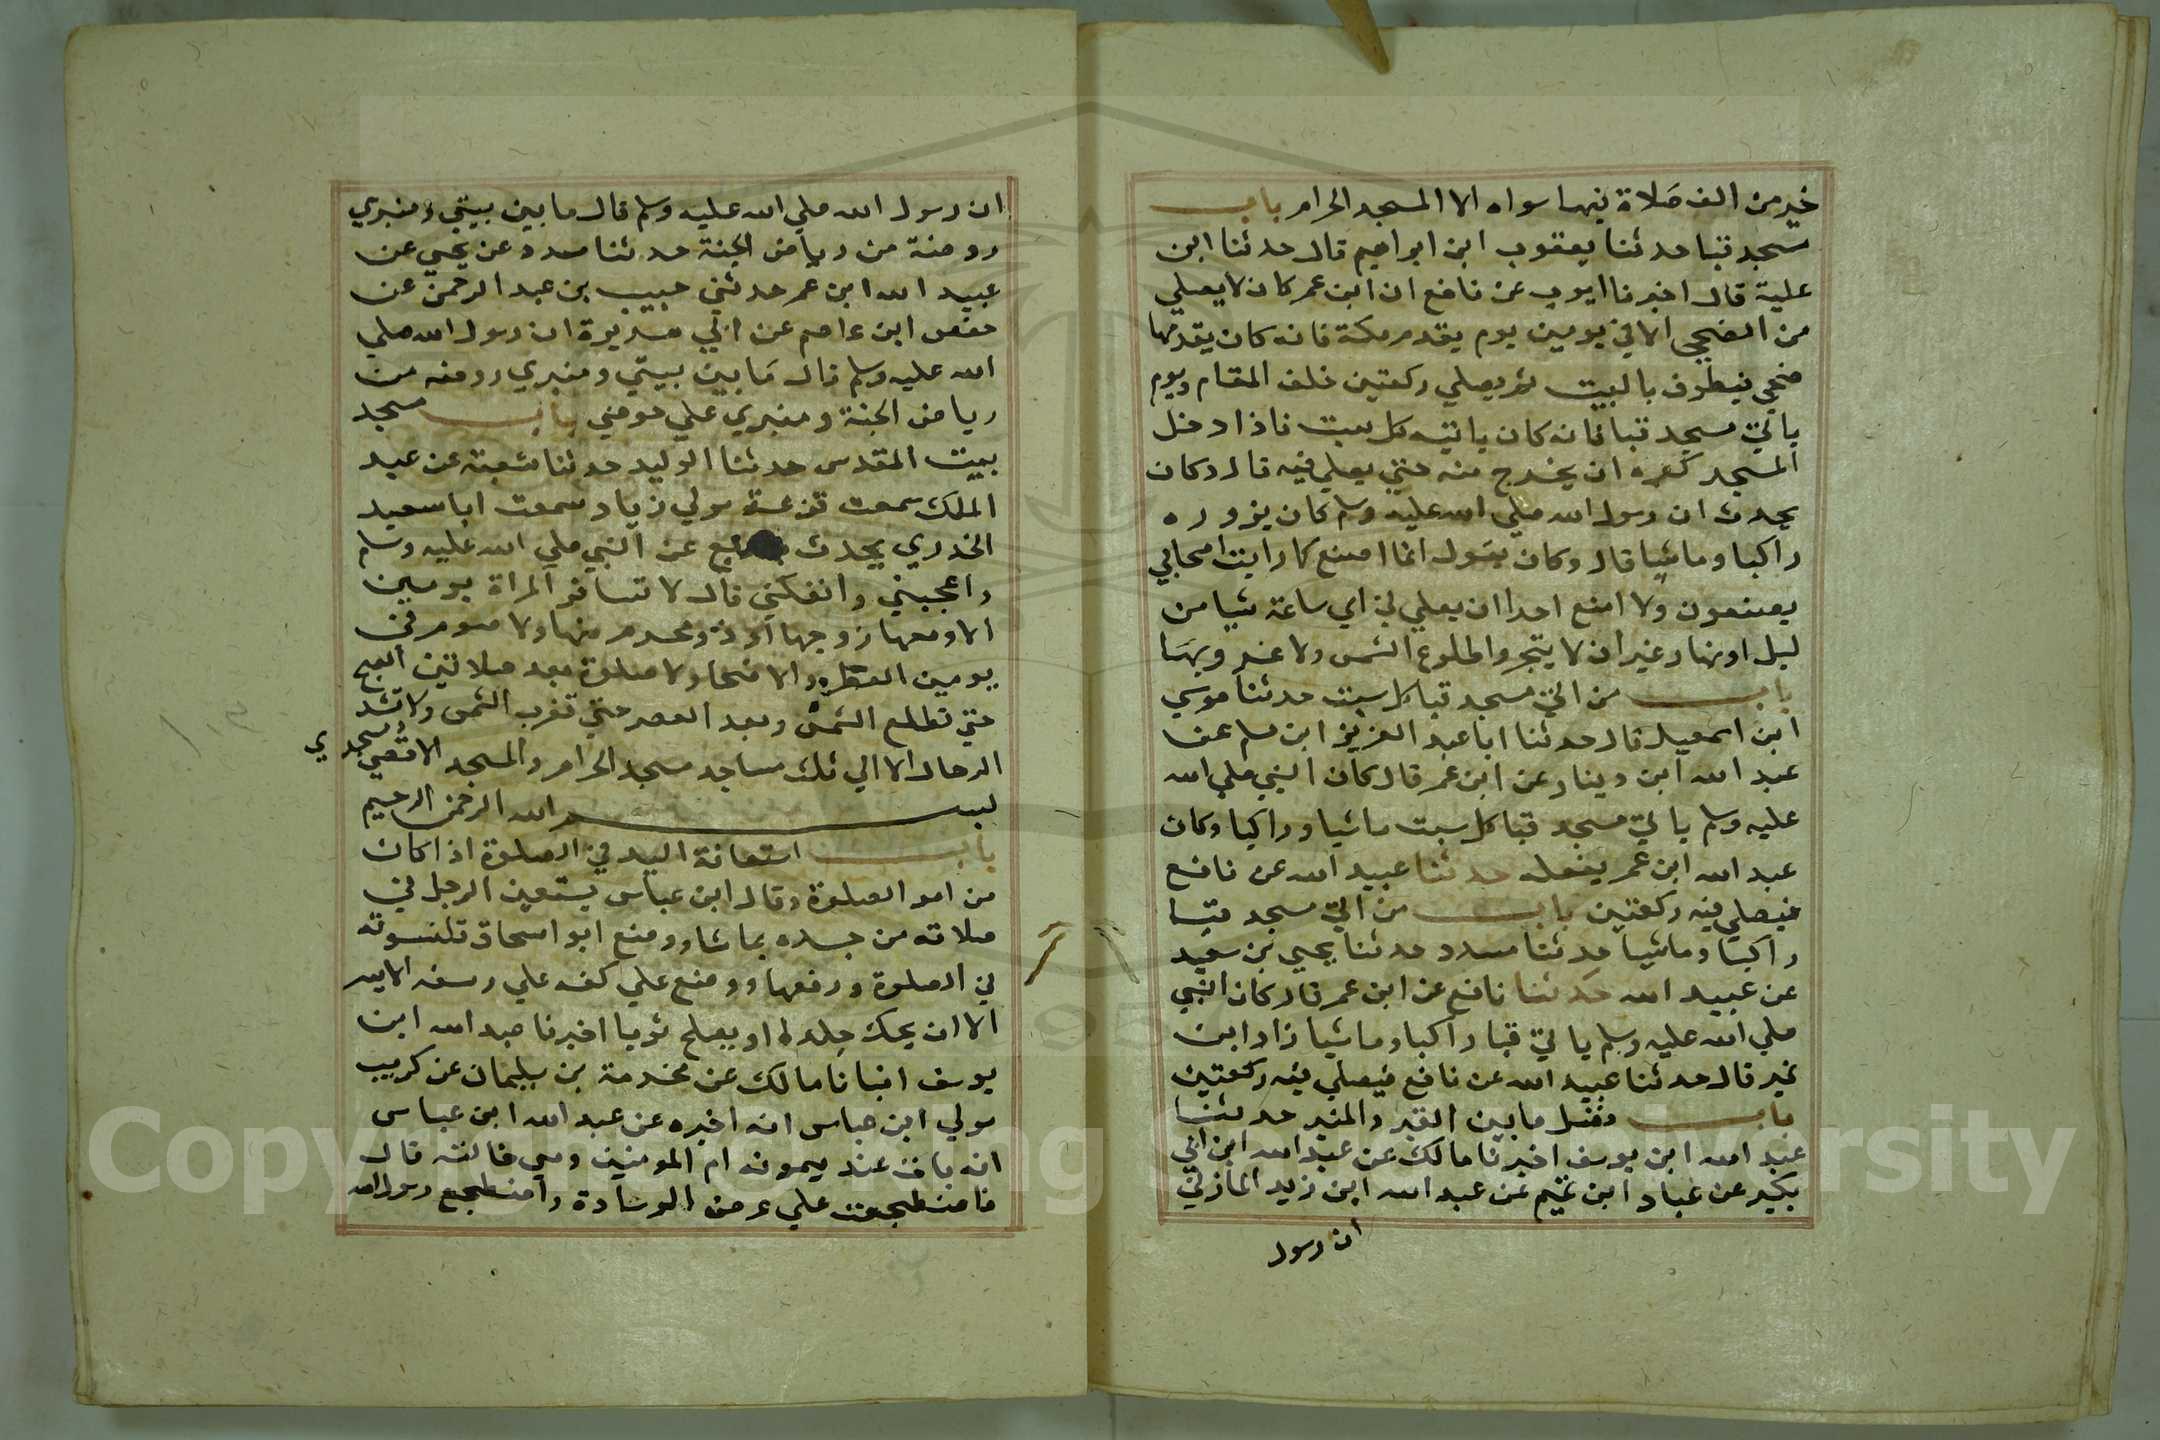 خير من الف صلاة فيما سواه الا المسجد الحرام باب
مسجد قبا حدثنا يعقوب ابن ابراهيم قال حدثنا ابن
علية قال اخبرنا ايوب عن نافع ان ابن عمر كان لا يصلي
من الضحي الا في يومين يوم يقدم مكة فانه كان يقدمها
ضحي فيطوف بالبيت ثم يصلي ركعتين خلف المقام ويوم
ياتي مسجد قبا فانه كان ياتيه كل سبت فاذا دخل
المسجد كره ان يخرج منه حتي يصلي فيه قال وكان
يحدث ان رسول الله صلي الله عليه وسلم كان يزوره
راكبا وماشيا قال وكان يقول انما اصنع كما رايت اصحابي
يصنعون ولا امنع احدا ان يصلي في اي ساعة شيا من
ليل او نهار غير ان لا يتحروا طلوع الشمس ولا غروبها
باب من اتي مسجد قبا كل سبت حدثنا موسي
ابن اسمعيل قال حدثنا ابا عبد العزيز ابن مسلم عن
عبد الله ابن دينار عن ابن عمر قال كان النبي صلي الله
عليه وسلم ياتي مسجد قبا كل سبت ماشيا وراكبا وكان
عبد الله ابن عمر يفعله حدثنا عبيد الله عن نافع
فيصلي فيه ركعتين باب من اتي مسجد قبا
راكبا وماشيا حدثنا مسدد حدثنا يحيي بن سعيد
عن عبيد الله حدثنا نافع عن ابن عمر قال كان النبي
صلي الله عليه وسلم ياتي قبا راكبا وماشيا زاد ابن
نمير قال حدثنا عبيد الله عن نافع فيصلي فيه ركعتين
باب فضل ما بين القبر والمنبر حدثنا
عبد الله ابن يوسف اخبرنا مالك عن عبد الله ابن ابي
بكير عن عباد ابن تميم عن عبد الله ابن زيد المازني
ان رسول
ان رسول الله صلي الله عليه وسلم قال ما بين بيتي ومنبري
روضة من رياض الجنة حدثنا مسدد عن يحيي عن
عبيد الله ابن عمر حدثني حبيب بن عبد الرحمن عن
حفص ابن عاصم عن ابي هريرة ان رسول الله صلي
الله عليه وسلم قال ما بين بيتي ومنبري روضه من
رياض الجنة ومنبري علي حوضي باب مسجد
بيت المقدس حدثنا الوليد حدثنا شعبة عن عبد
الملك سمعت قزعة مولي زياد سمعت ابا سعيد
الخدري يحدث عن النبي صلي الله عليه وسلم
واعجبني وانقكني قال لا تسافر المراة يومين
الا ومعها زوجها او ذو محرم منها ولا صوم في
يومين الفطر والاضحا ولا صلوة بعد صلاتين الصبح
حتي تطلع الشمس وبعد العصر حتي تغرب الشمس ولا تشد
الرحال الا الي ثلث مساجد مسجد الحرام والمسجد الاقصي ومسجدي
بسم الله الرحمن الرحيم
باب استعانة اليد في الصلوة اذا كان
من امر الصلوة وقال ابن عباس يستعين الرجل في
صلاته من جسده بما شا ووضع ابو اسحاق قلنسوته
في الصلوة ورفعها ووضع علي كفه علي رسغه الايسر
الا ان يحك جلدا او يصلح ثوبا اخبرنا عبد الله ابن
يوسف انبانا مالك عن مخرمة بن سليمان عن كريب
مولي ابن عباس انه اخبره عن عبد الله ابن عباس
انه بات عند ميمونه ام المومنين وهي خالته قال
فاضطجعت علي عرض الوسادة واضطجع رسول الله
Copyright King Saud University